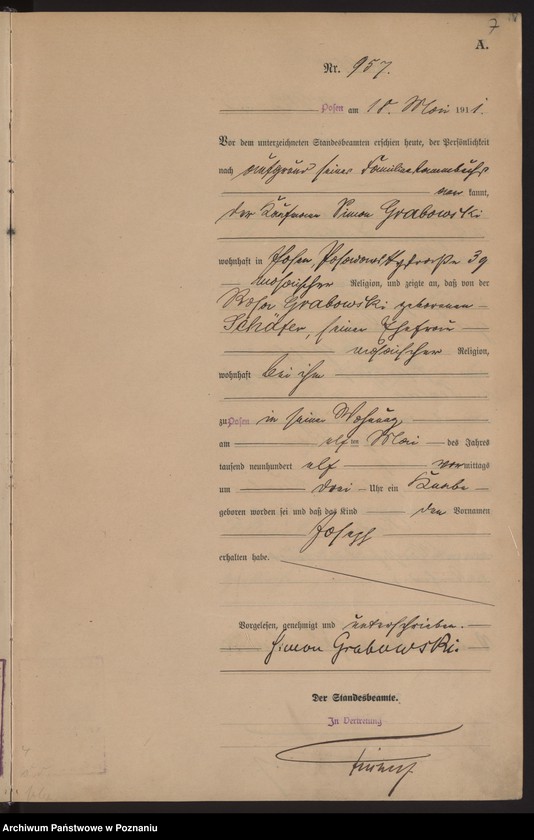 7
A.
Nr. 957.
Posen am 1 . Mai 1911.
Vor dem unterzeichneten Standesbeamten erschien heute, der Persönlichkeit
nach aufgrund seines Familienstammbuchs
kannt,
der Kaufmann Simon Grabowski
wohnhaft in Posen, 39
mosaischer Religion, und zeigte an, daß von der
Rosa Grabowski geborenen
Schäfer, seiner Ehefrau
mosaischer Religion,
wohnhaft bei ihm
zu Posen in seiner Wohnung
am elften Mai des Jahres
tausend neunhundert elf vormittags
um drei Uhr ein Knabe
geboren worden sei und daß das Kind den Vornamen
Joseph
erhalten habe.
Vorgelesen, genehmigt und unterschrieben.
Simon Grabowski.
Der Standesbeamte.
In Vertretung
Archiwum Państwowe w Poznaniu